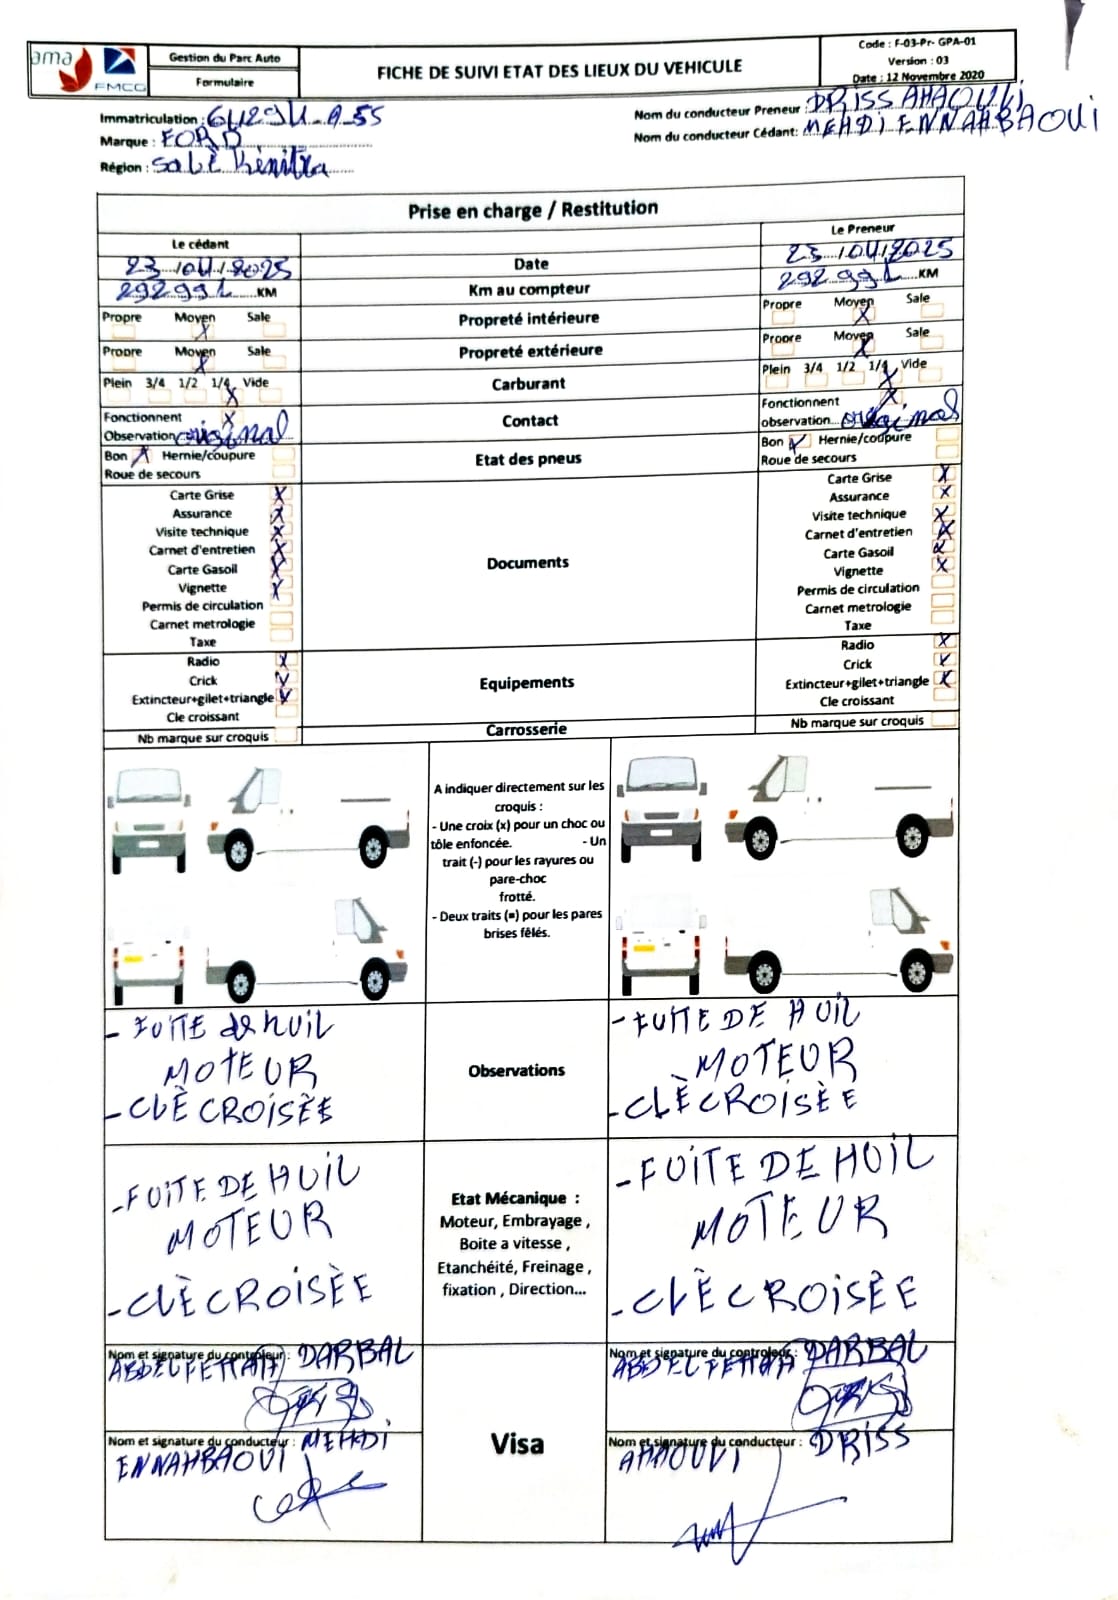 ama
FMCG
Gestion du Parc Auto
Formulaire
FICHE DE SUIVI ETAT DES LIEUX DU VEHICULE
Code : F-03-Pr- GPA-01
Version : 03
Date : 12 Novembre 2020
Immatriculation :
Marque : FORD
Région : Salè Kènitra
Nom du conducteur Preneur : DRISS AHAOUI
Nom du conducteur Cédant: MEHDI ENNAHBAOUI
Prise en charge / Restitution
Le cédant
Le Preneur
23/04/2025 Date 23/04/2025
292991 KM Km au compteur 292991 KM
Propre Moyen X Sale Propreté intérieure Propre Moyen X Sale
Propre Moyen X Sale Propreté extérieure Propre Moyen X Sale
Plein 3/4 1/2 1/4 X Vide Carburant Plein 3/4 1/2 1/4 X Vide
Fonctionnent X Contact Fonctionnent X
Observation original observation original
Bon X Hernie/coupure Etat des pneus Bon X Hernie/coupure
Roue de secours Roue de secours
Carte Grise X Carte Grise X
Assurance X Assurance X
Visite technique X Visite technique X
Carnet d'entretien X Carnet d'entretien X
Carte Gasoil X Documents Carte Gasoil X
Vignette X Vignette X
Permis de circulation Permis de circulation
Carnet metrologie Carnet metrologie
Taxe Taxe
Radio X Radio X
Crick X Equipements Crick X
Extincteur+gilet+triangle X Extincteur+gilet+triangle X
Cle croissant Cle croissant
Nb marque sur croquis Carrosserie Nb marque sur croquis
A indiquer directement sur les
croquis :
- Une croix (x) pour un choc ou
tôle enfoncée. - Un
trait (-) pour les rayures ou
pare-choc
frotté.
- Deux traits (=) pour les pares
brises fêlés.
- FUITE de huil
MOTEUR
- CLÈ CROISÈE
Observations
- FUITE DE HUIL
MOTEUR
- CLÈ CROISÈE
- FUITE DE HUIL
MOTEUR
- CLÈ CROISÈE
Etat Mécanique :
Moteur, Embrayage ,
Boite a vitesse ,
Etanchéité, Freinage ,
fixation , Direction...
- FUITE DE HUIL
MOTEUR
- CLÈ CROISÈE
Nom et signature du controleur : DARBAL
ABDELFETTAH
Nom et signature du controleur : DARBAL
ABDELFETTAH
Visa
Nom et signature du conducteur : MEHDI
ENNAHBAOUI
Nom et signature du conducteur : DRISS
AHAOUI